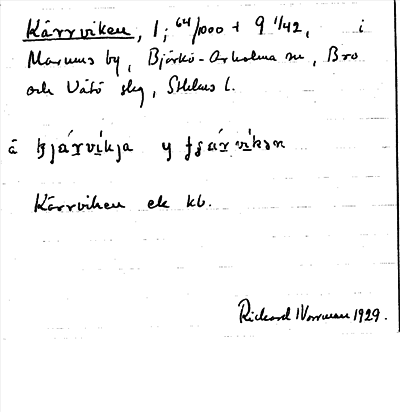 Kärrviken, 1; 64/1000 + 9 1/42, i
Marums by, Björkö-Arholma sn, Bro
och Vätö skg, Sthlms l.
ä y
Kärrviken ek kb.
Rickard Norrman 1929.